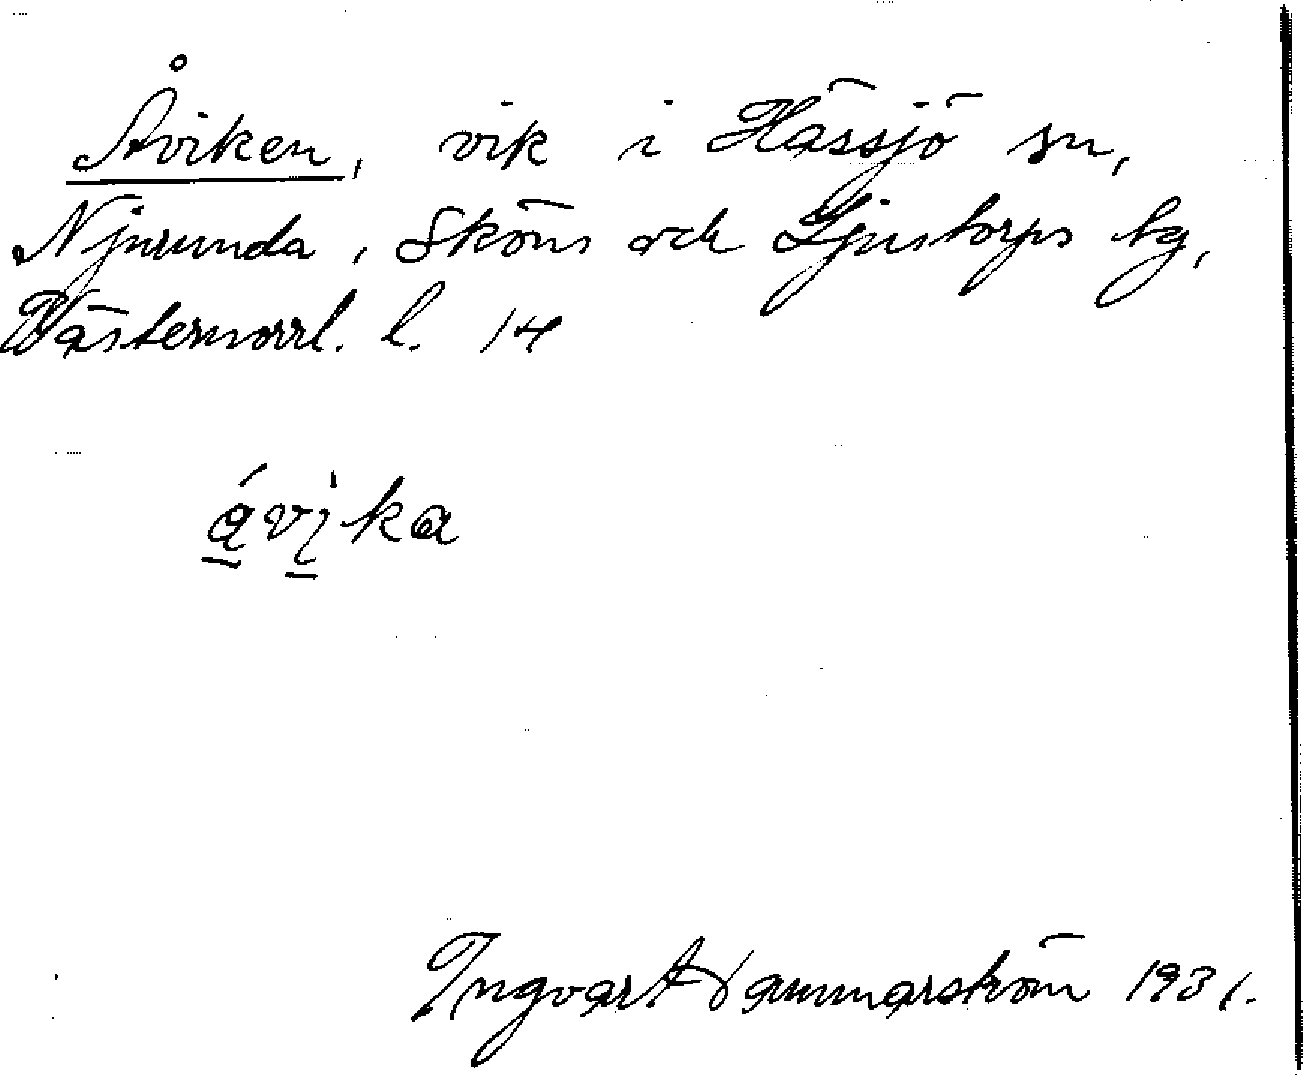 Åviken, vik i Hässjö sn,
Njurunda, Sköns och Ljustorps tg,
Västernorrl. l. 14
ávi̇ka
Ingvart Hammarström 1931.